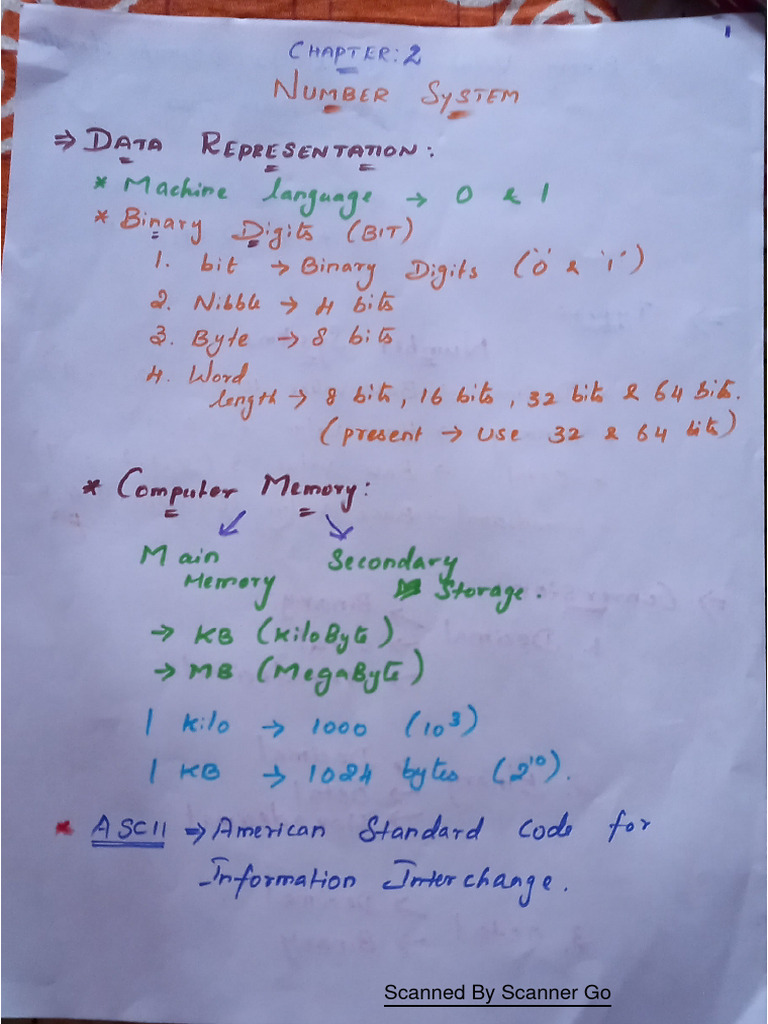 1
CHAPTER: 2
NUMBER SYSTEM
⇒ DATA REPRESENTATION:
* Machine language → 0 & 1
* Binary Digits (BIT)
1. bit → Binary Digits ('0' & '1')
2. Nibble → 4 bits
3. Byte → 8 bits
4. Word
length → 8 bits, 16 bits, 32 bits & 64 bits.
(present → use 32 & 64 bits)
* Computer Memory:
Main Secondary
Memory Storage.
→ KB (KiloByte)
→ MB (MegaByte)
1 Kilo → 1000 (10³)
1 KB → 1024 bytes (2¹⁰).
* ASCII ⇒ American Standard Code for
Information Interchange.
Scanned By Scanner Go